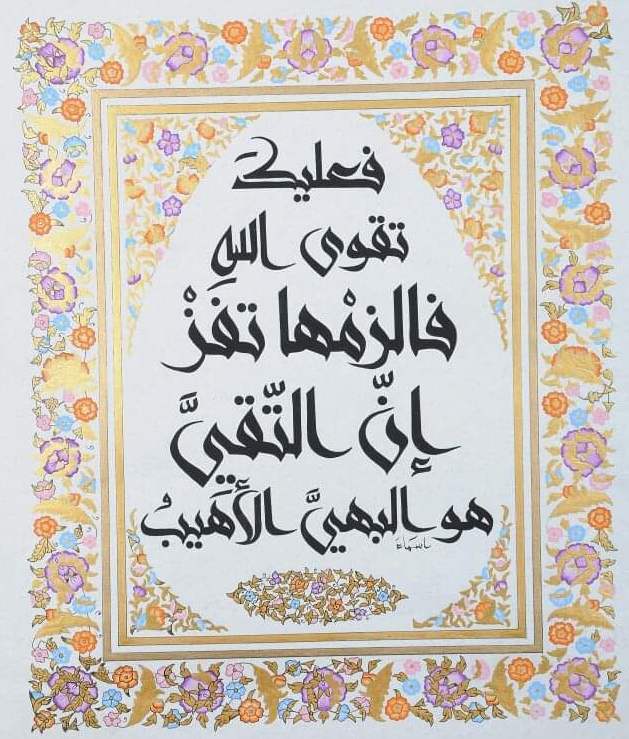 فعليك
تقوى اللهِ
فالزمْها تفزْ
إنّ التّقيَّ
هو البهيَّ الأَهيبُ